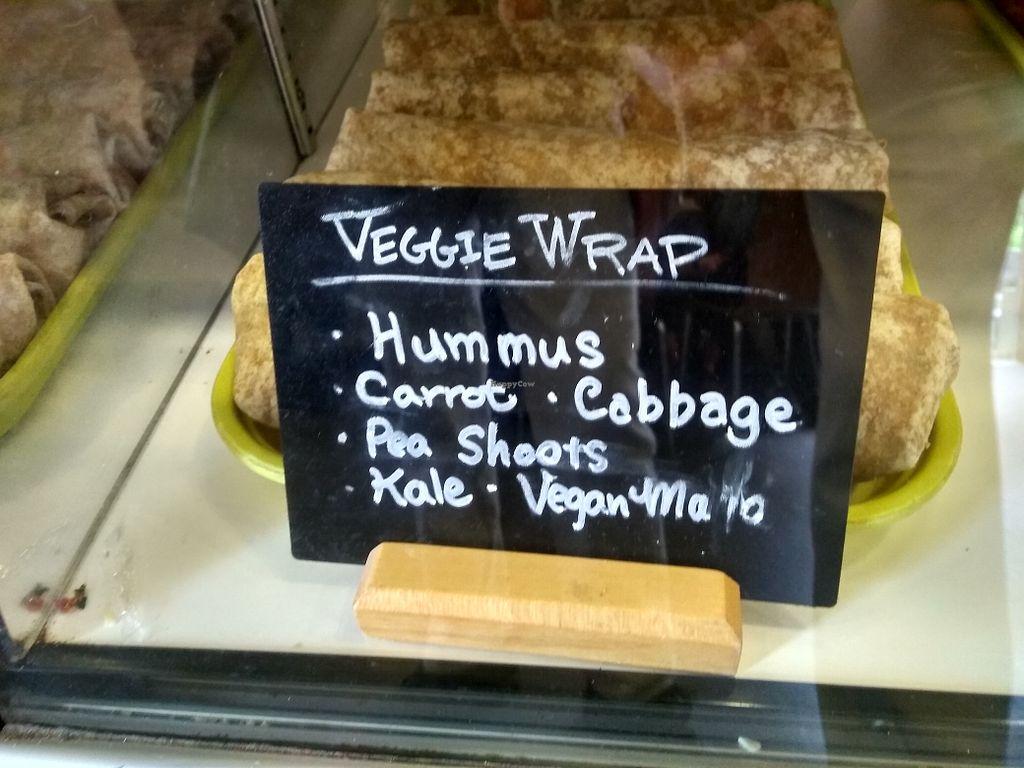 VEGGIE WRAP
· Hummus
· Carrot · Cabbage
· Pea Shoots
· Kale · Vegan Mayo
HappyCow